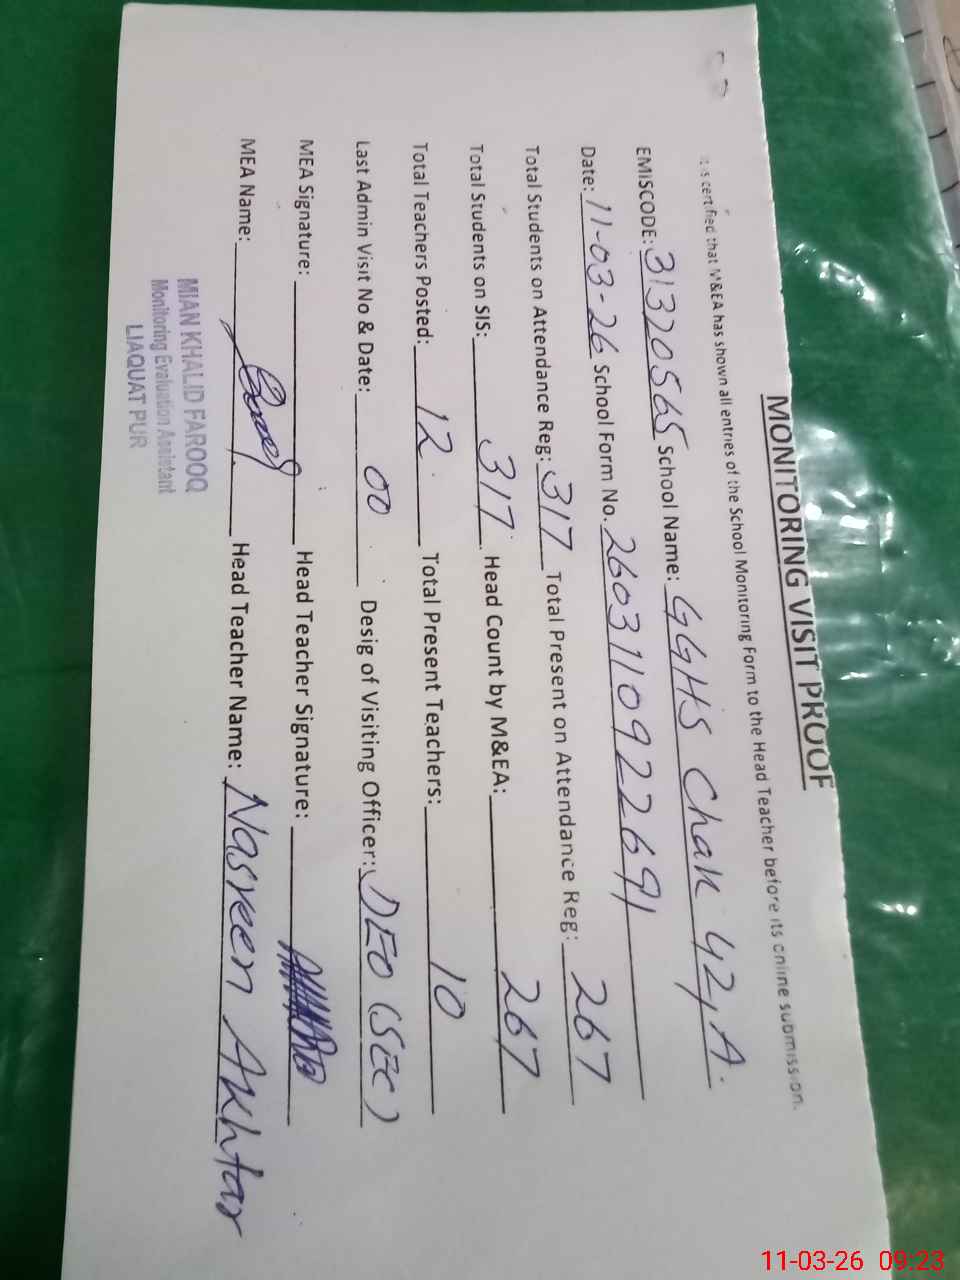 MONITORING VISIT PROOF
It is certified that M&EA has shown all entries of the School Monitoring Form to the Head Teacher before its online submission.
EMISCODE: 31320565 School Name: GGHS Chak 42,A.
Date: 11-03-26 School Form No. 2603110922691
Total Students on Attendance Reg: 317 Total Present on Attendance Reg: 267
Total Students on SIS: 317 Head Count by M&EA: 267
Total Teachers Posted: 12 Total Present Teachers: 10
Last Admin Visit No & Date: 00 Desig of Visiting Officer: DEO (SEC)
MEA Signature: Head Teacher Signature:
MEA Name: Head Teacher Name: Nasreen Akhtar
MIAN KHALID FAROOQ
Monitoring Evaluation Assistant
LIAQUAT PUR
11-03-26 09:23